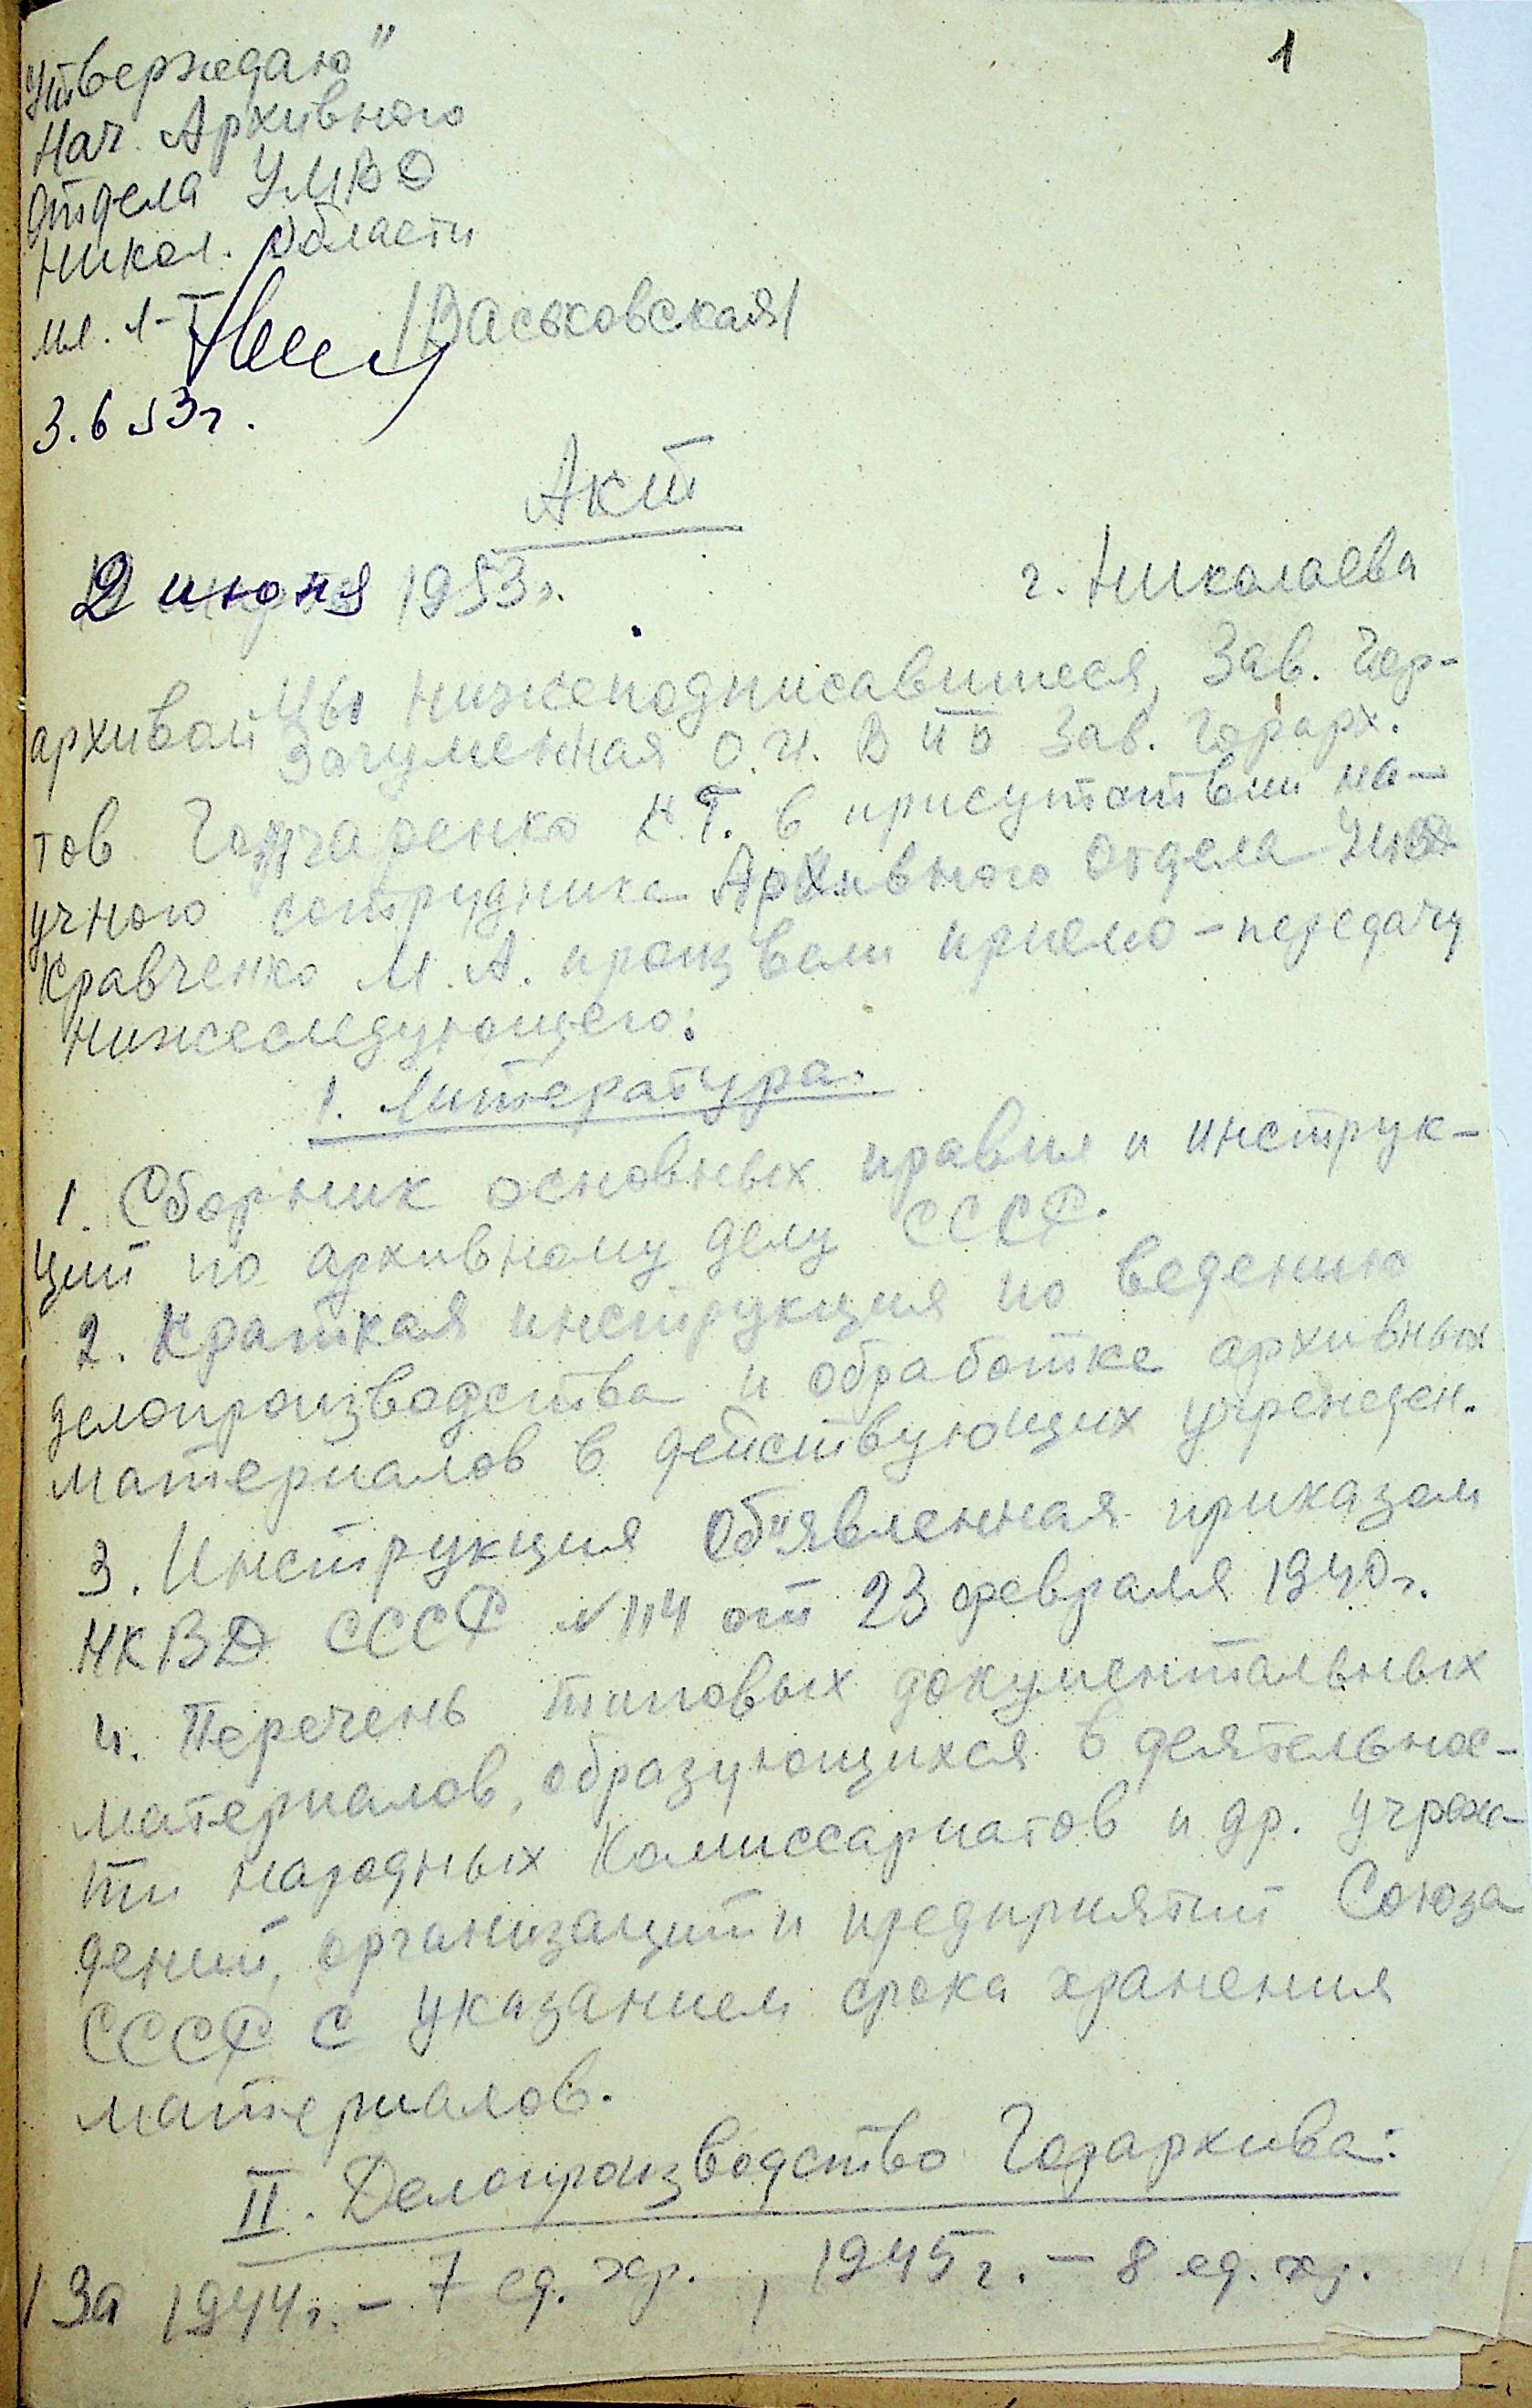 1
"Утверждаю"
Нач. Архивного
Отдела УМВД
Никол. Области
мл. л-т /Васьковская/
3.6 53г.
Акт
2 июня 1953г. г. Николаева
Мы нижеподписавшиеся, Зав. Гор-
архивом О.И. В Зав. Горарх.
тов Гончаренко К.Т. в присутствии на-
учного сотрудника Архивного Отдела
Кравченко М.А. произвели приемо-передачу
нижеследующего:
1. Литература.
1. Сборник основных правил и инструк-
ций по архивному делу СССР.
2. Краткая инструкция по ведению
делопроизводства и обработке архивных
материалов в действующих учрежден.
3. Инструкция Об"явленная приказом
НКВД СССР №114 от 23 февраля 1940г.
4. Перечень типовых документальных
материалов, образующихся в деятельнос-
ти народных Комиссариатов и др. учреж-
дений, организаций и предприятий Союза
СССР с указанием срока хранения
материалов.
II. Делопроизводство Горархива:
1 За 1944г. - 7 ед. хр., 1945г. - 8 ед. хр.